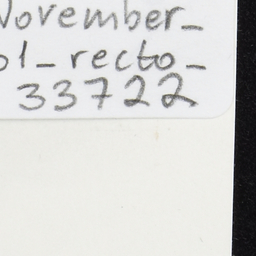 November_
01_recto_
33722